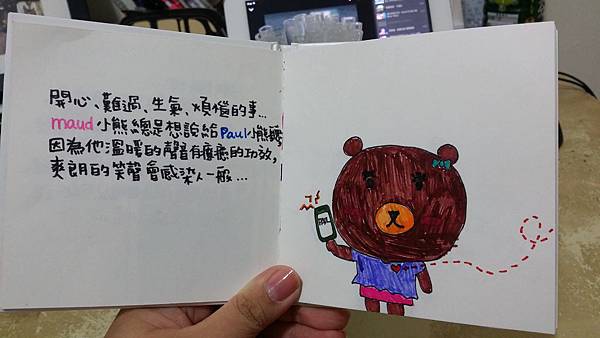 開心、難過、生氣、煩惱的事...
maud小熊總是想說給Paul小熊聽
因為他溫暖的聲音有療癒的功效,
爽朗的笑聲會感染人一般...
PAUL